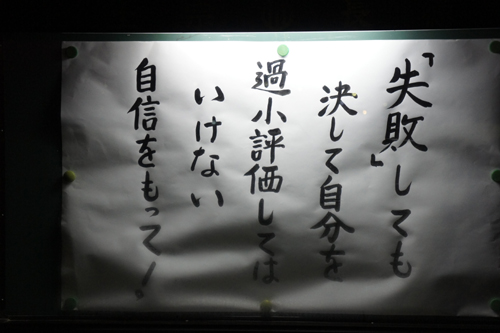 「失敗」しても
決して自分を
過小評価しては
いけない
自信をもって!